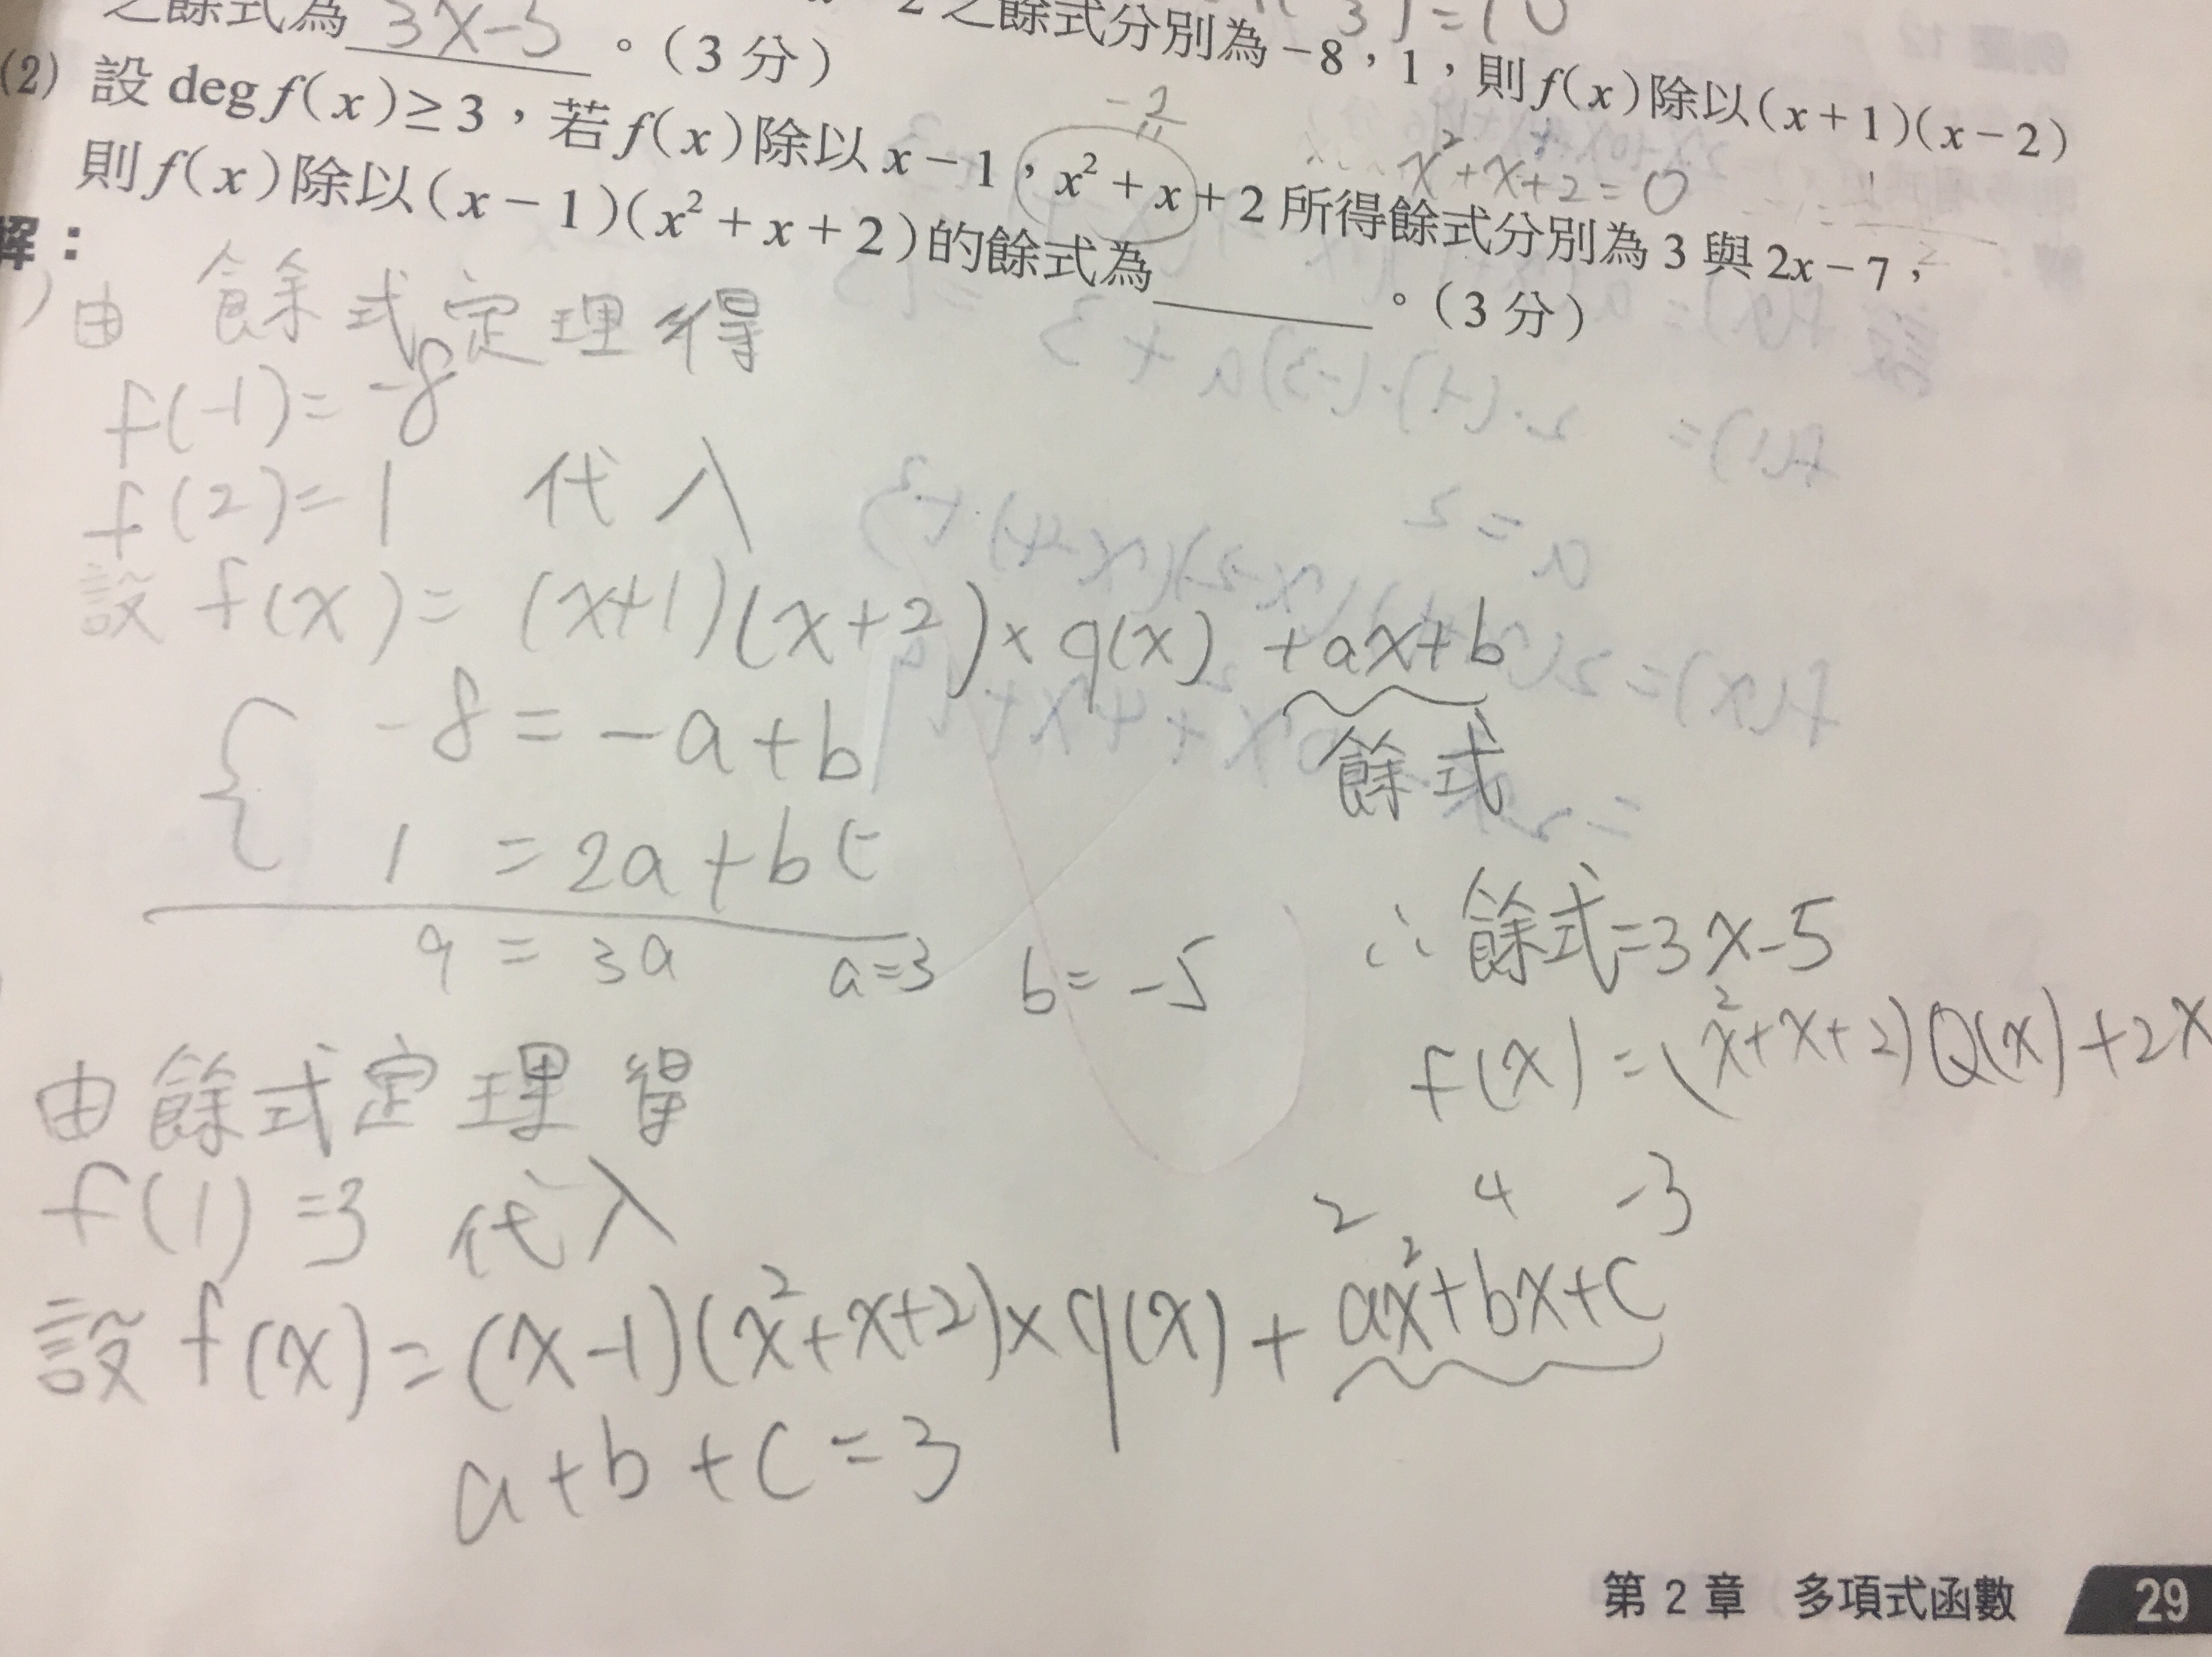 2 之餘式分別為 -8，1，則 f(x) 除以 (x+1)(x-2)
之餘式為 3x-5 。(3分)
(2) 設 deg f(x) ≥ 3，若 f(x) 除以 x-1，x²+x+2 所得餘式分別為 3 與 2x-7，
則 f(x) 除以 (x-1)(x²+x+2) 的餘式為 。(3分)
-2
x²+x+2=0
解：
由餘式定理得
f(-1)=-8
f(2)=1 代入
設 f(x)=(x+1)(x+2)×q(x)+ax+b
餘式
-8=-a+b
1=2a+b
9=3a a=3 b=-5
∴餘式=3x-5
f(x)=(x²+x+2)Q(x)+2x
由餘式定理得
f(1)=3 代入
2 4 -3
設 f(x)=(x-1)(x²+x+2)×q(x)+ax²+bx+c
a+b+c=3
第 2 章 多項式函數 29